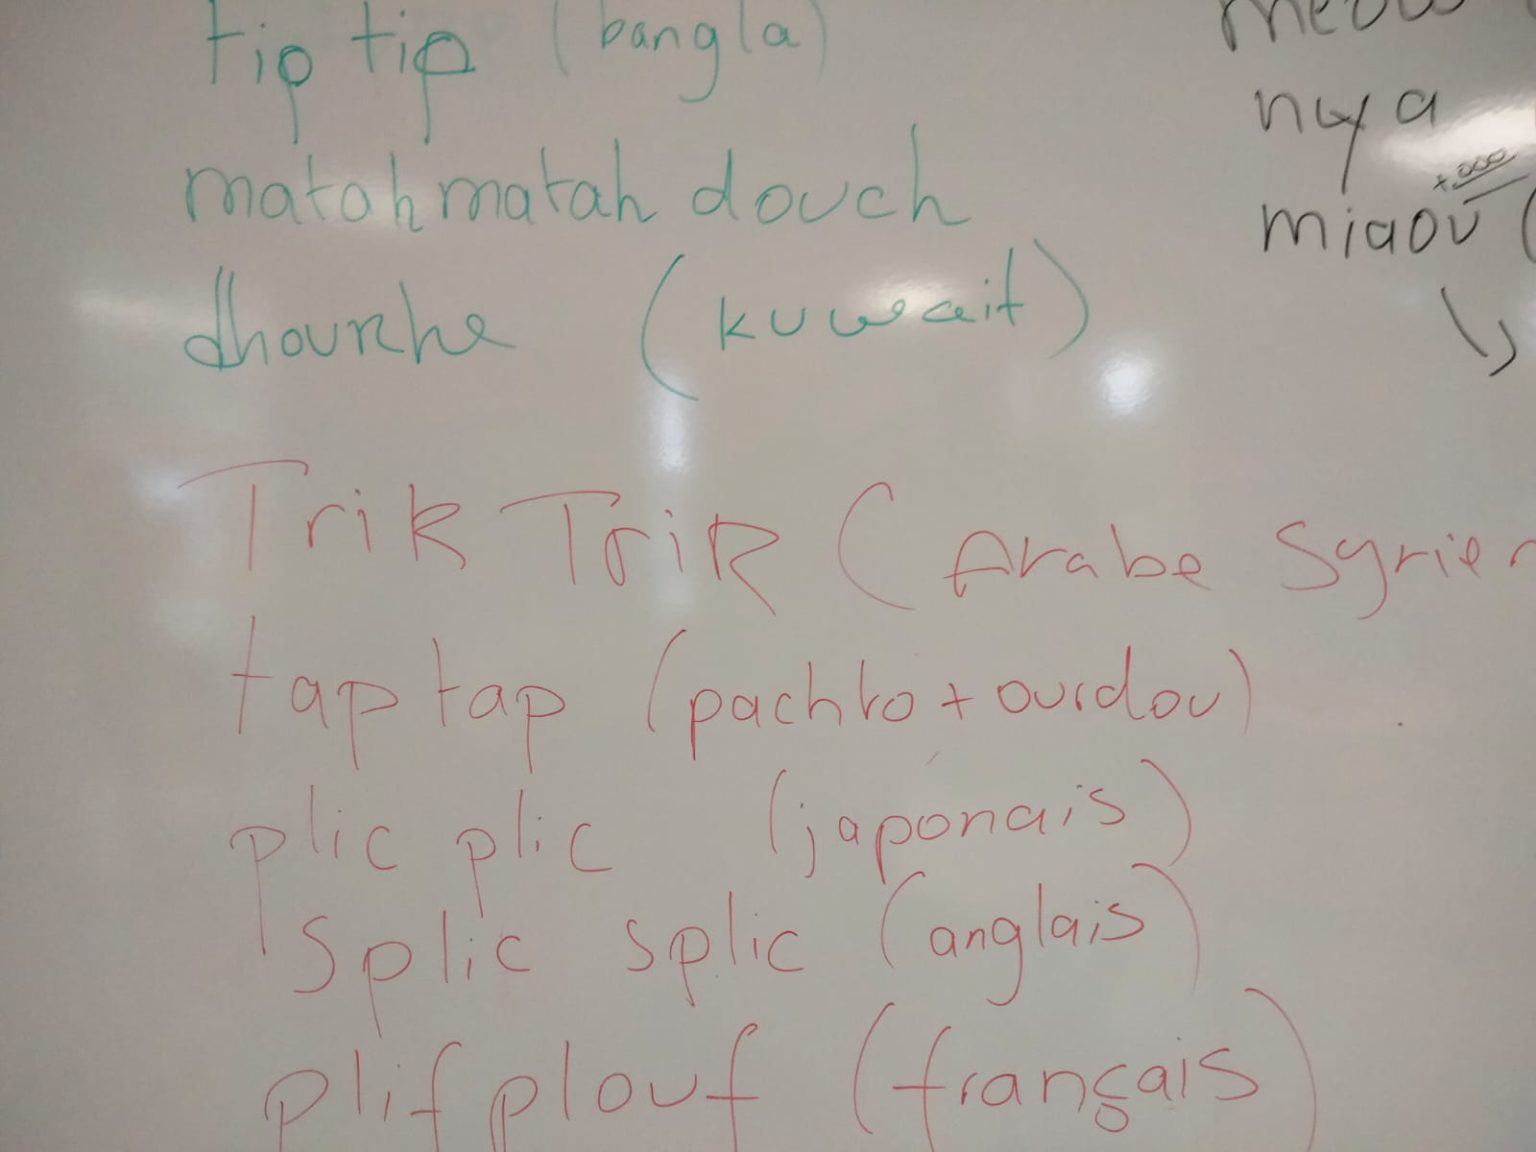 tip tip (bangla)
matahmatah douch
dhourhe (kuwait)
Trik Trik (Arabe Syrien
tap tap (pachto + ourdou)
plic plic (japonais)
Splic splic (anglais)
plif plouf (français)
meow
nya
miaou (